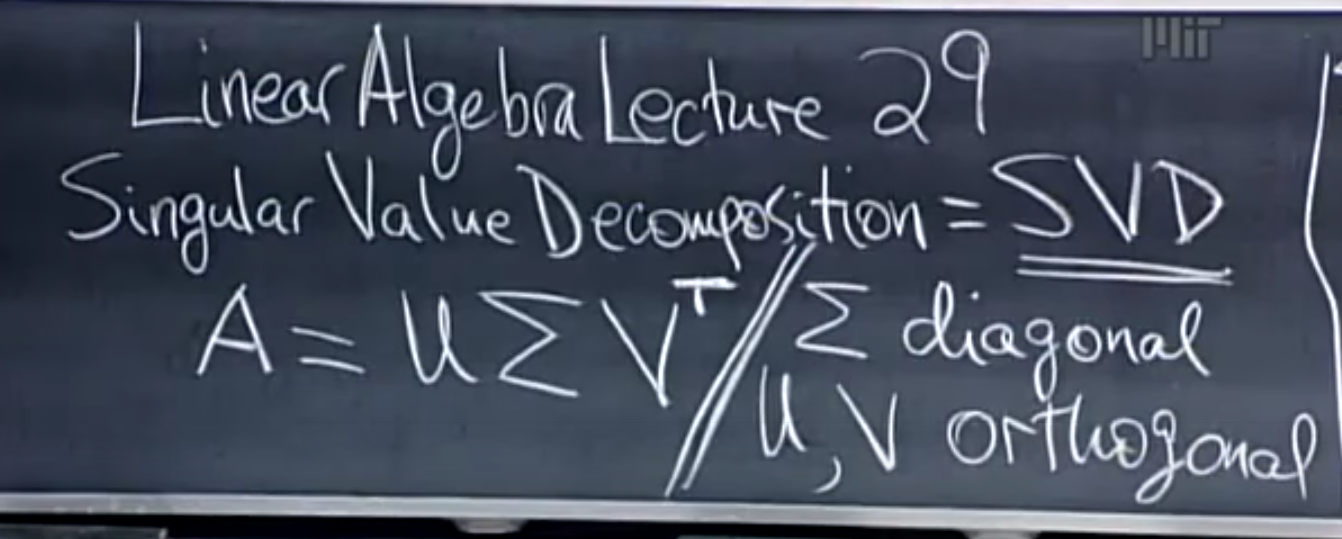 MIT
Linear Algebra Lecture 29
Singular Value Decomposition = SVD
A = U Σ Vᵀ // Σ diagonal
U, V orthogonal